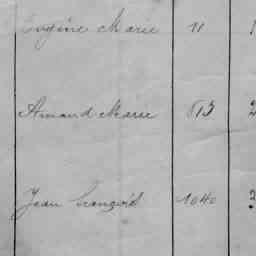 Eugène Marie 11 1
Amand Marie 813 2
Jean François 1040 2